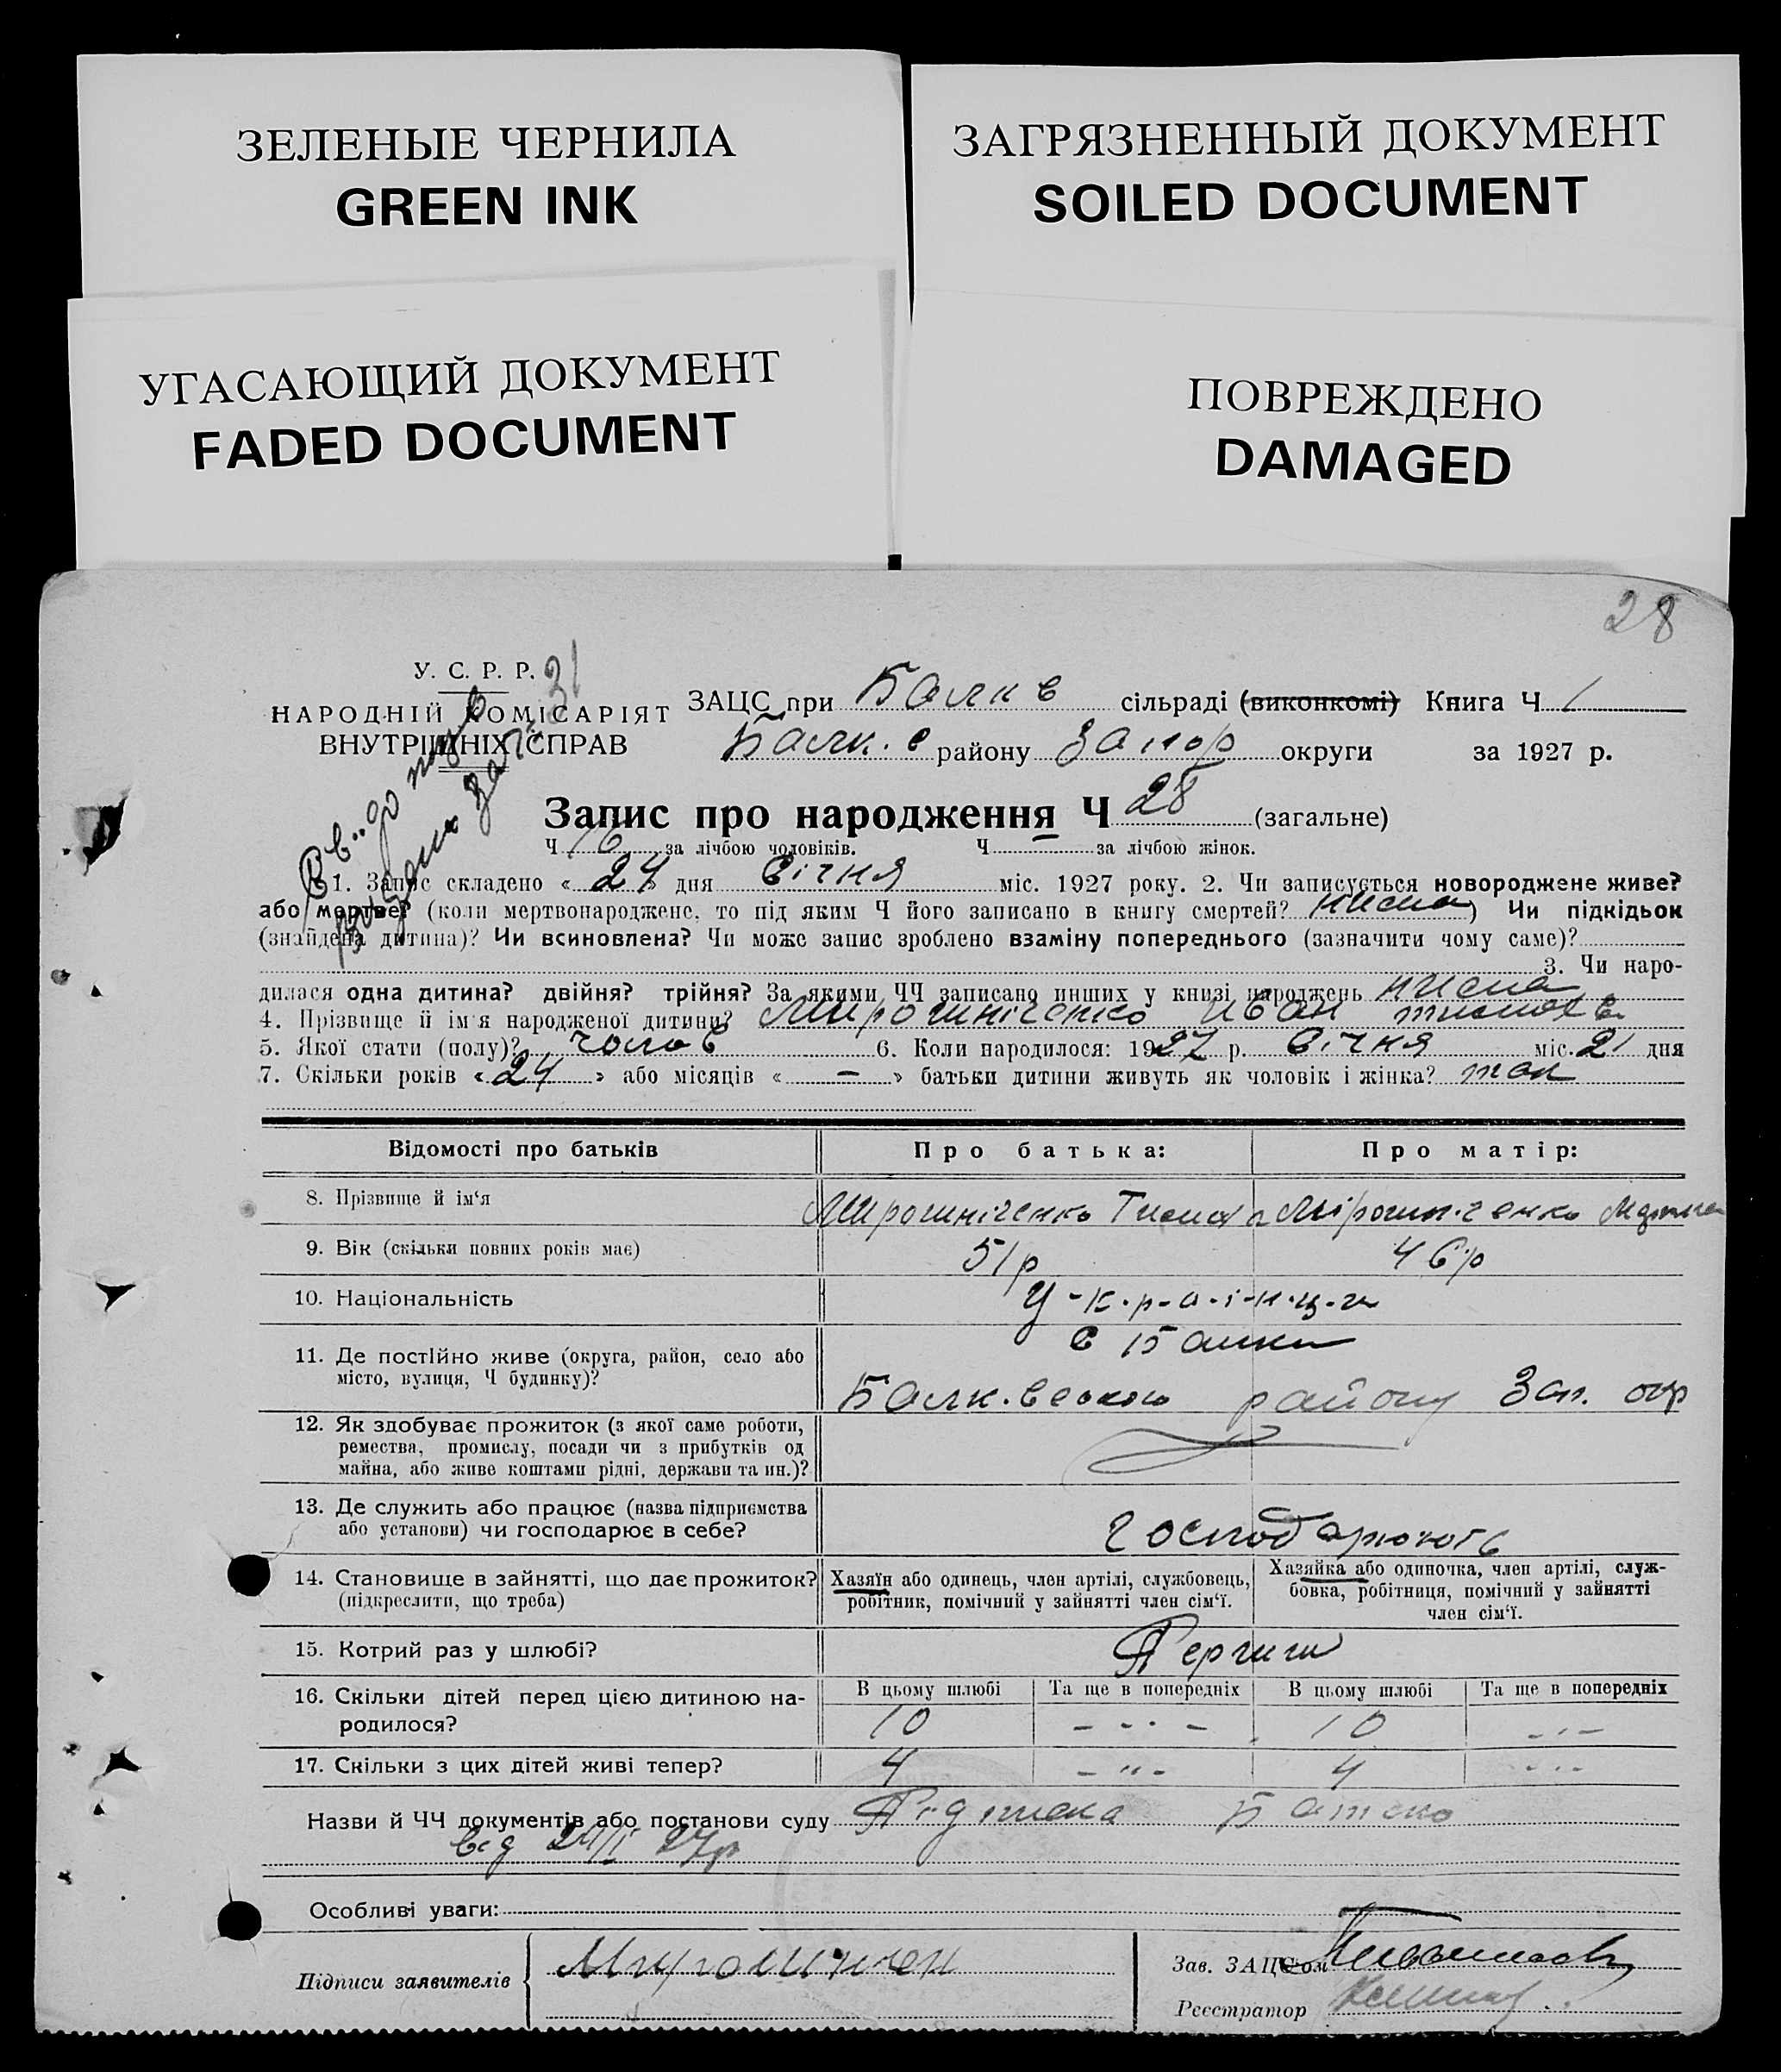 ЗЕЛЕНЫЕ ЧЕРНИЛА
GREEN INK
ЗАГРЯЗНЕННЫЙ ДОКУМЕНТ
SOILED DOCUMENT
УГАСАЮЩИЙ ДОКУМЕНТ
FADED DOCUMENT
ПОВРЕЖДЕНО
DAMAGED
28
У. С. Р. Р.
НАРОДНІЙ КОМІСАРІЯТ
ВНУТРІШНІХ СПРАВ
ЗАЦС при Балків сільраді (виконкомі) Книга Ч 1
Балк. в району Запор округи за 1927 р.
Запис про народження Ч 28 (загальне)
Ч 16 за лічбою чоловіків. Ч — за лічбою жінок.
1. Запис складено « 24 » дня Січня міс. 1927 року. 2. Чи записується новороджене живе?
або мертве? (коли мертвонароджене, то під яким Ч його записано в книгу смертей? ) Чи підкідьок
(знайдена дитина)? Чи всиновлена? Чи може запис зроблено взаміну попереднього (зазначити чому саме)?
3. Чи наро-
дилася одна дитина? двійня? трійня? За якими ЧЧ записано инших у книзі народжень
4. Прізвище й ім'я народженої дитини? Мирошніченко Иван
5. Якої стати (полу)? чолов 6. Коли народилося: 1927 р. Січня міс. 21 дня
7. Скільки років « 24 » або місяців « — » батьки дитини живуть як чоловік і жінка? так
Відомості про батьків Про батька: Про матір:
8. Прізвище й ім'я Мирошніченко Мірошніченко
9. Вік (скільки повних років має) 51р 46р
10. Національність У-к-р-а-ї-н-ц-и
11. Де постійно живе (округа, район, село або
місто, вулиця, Ч будинку)?
с Балки
Балк.вського району Зап. окр
12. Як здобуває прожиток (з якої саме роботи,
ремества, промислу, посади чи з прибутків од
майна, або живе коштами рідні, держави та ин.)?
13. Де служить або працює (назва підприємства
або установи) чи господарює в себе?
господарюють
14. Становище в зайнятті, що дає прожиток?
(підкреслити, що треба)
Хазяїн або одинець, член артілі, службовець,
робітник, помічний у зайнятті член сім'ї.
Хазяйка або одиночка, член артілі, служ-
бовка, робітниця, помічний у зайнятті
член сім'ї.
15. Котрий раз у шлюбі? Перший
16. Скільки дітей перед цією дитиною на-
родилося?
В цьому шлюбі Та ще в попередніх В цьому шлюбі Та ще в попередніх
10 10
17. Скільки з цих дітей живі тепер? 4 4
Назви й ЧЧ документів або постанови суду Батько
від 24/I 27р
Особливі уваги:
Підписи заявителів
Зав. ЗАЦСом
Реєстратор